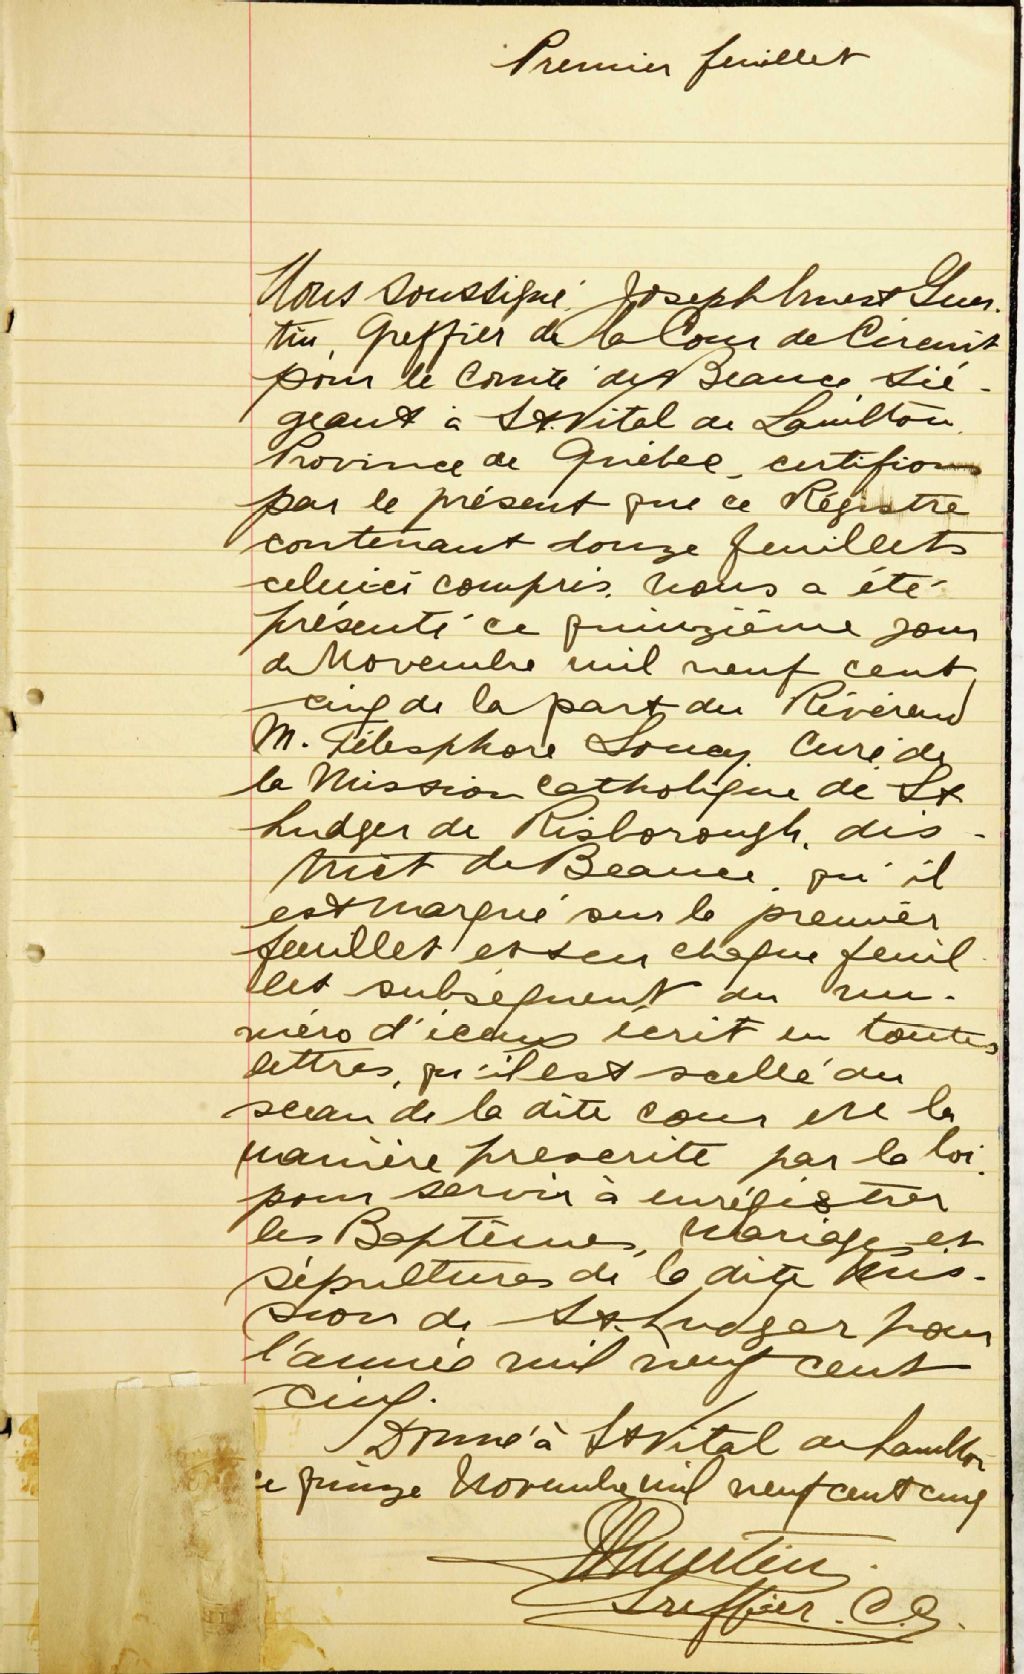 Premier feuillet
Nous soussigné, Joseph Ernest Guer-
tin, Greffier de la Cour de Circuit
pour le Comté de Beauce, sié-
geant à St. Vital de Lambton,
Province de Québec, certifions
par le présent que ce Régistre
contenant douze feuillets
celui-ci compris, nous a été
présenté ce quinzième jour
de Novembre mil neuf cent
cinq de la part du Révérend
M. Télesphore Soucy, Curé de
la Mission catholique de St
Ludger de Risborough, dis-
trict de Beauce, qu'il
est marqué sur le premier
feuillet et sur chaque feuil-
let subséquent du nu-
méro d'iceux écrit en toutes
lettres, qu'il est scellé du
sceau de la dite cour en la
manière prescrite par la loi,
pour servir à enrégistrer
les Baptêmes, Mariages et
sépultures de la dite Mis-
sion de St. Ludger pour
l'année mil neuf cent
cinq.
Donné à St Vital de Lambton
ce quinze Novembre mil neuf cent cinq
Guertin
Greffier. C.C.